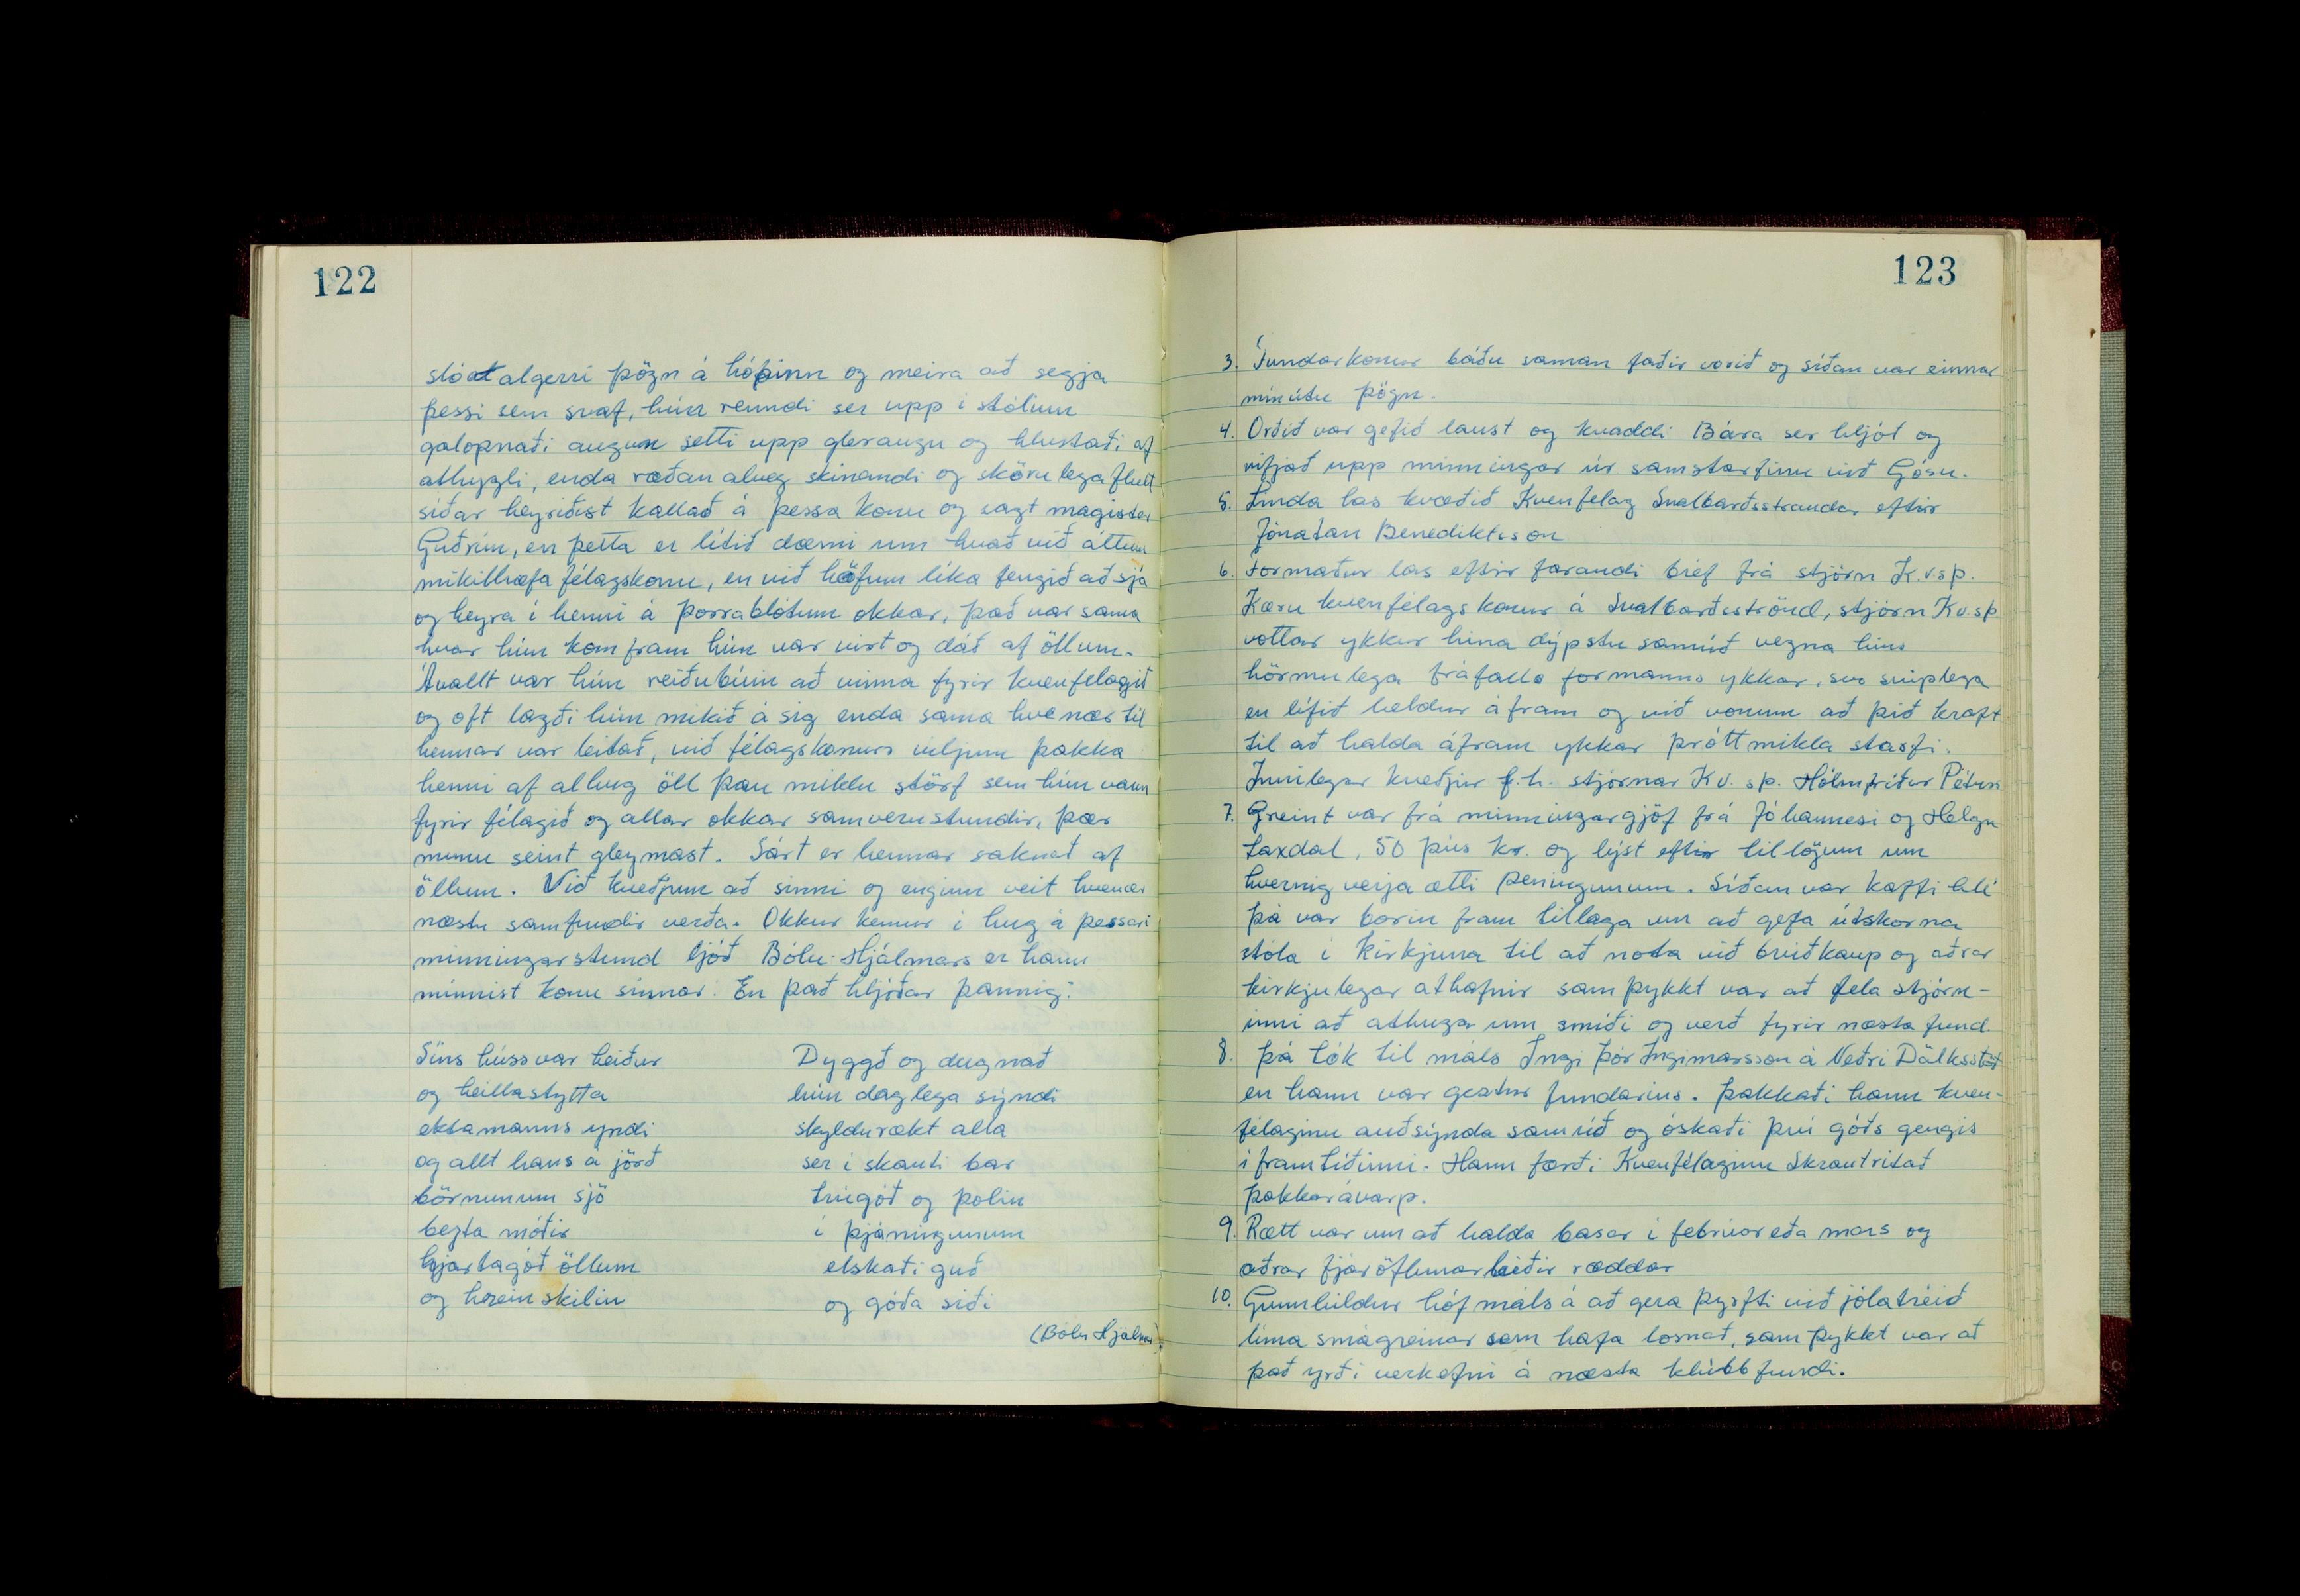 122
sló algerri þögn á hópinn og meira að segja
þessi sem svaf, hún renndi ser upp í stólum
galopnaði augun setti upp gleraugu og hlustaði af
athygli, enda ræðan alveg skínandi og skörulega flutt
síðar heyrðist kallað á þessa konu og sagt magister
Guðrún, en þetta er lítið dæmi um hvað við áttum
mikilhæfa félagskonu, en við höfum líka fengið að sjá
og heyra í henni á þorrablótum okkar, það var sama
hvar hún kom fram hún var virt og dáð af öllum.
Ávallt var hún reiðubúin að vinna fyrir kvenfelagið
og oft lagði hún mikið á sig enda sama hvenær til
hennar var leitað, við félagskonur viljum þakka
henni af alhug öll þau miklu störf sem hún vann
fyrir félagið og allar okkar samverustundir, þær
munu seint gleymast. Sárt er hennar saknað af
öllum. Við kveðjum að sinni og enginn veit hvenær
næstu samfundir verða. Okkur kemur í hug á þessari
minningarstund ljóð Bólu-Hjálmars er hann
minnist konu sinnar. En það hljóðar þannig:
Síns húss var heiður
og heillastytta
ektamanns yndi
og allt hans á jörð
börnunum sjö
bezta móðir
hjartagóð öllum
og hreinskilin
Dyggð og dugnað
hún daglega sýndi
skyldurækt alla
ser í skauti bar
trúgóð og þolin
í þjáningunum
elskaði guð
og góða siði
(Bólu Hjálmar).
123
3. Fundarkonur báðu saman faðir vorið og síðan var einnar
mínútu þögn.
4. Orðið var gefið laust og kvaddi Bára ser hljóð og
rifjað upp minningar úr samstarfinu við Gósu.
5. Linda las kvæðið Kvenfelag Svalbarðsstrandar eftir
Jónatan Benediktsson
6. Formaður las eftir farandi bréf frá stjórn K.v.sþ.
Kæru kvenfélagskonur á Svalbarðsströnd, stjórn Kv.sþ
vottar ykkur hina dýpstu samúð vegna hins
hörmulega fráfalls formanns ykkar, svo sviplega
en lífið heldur áfram og við vonum að þið kraft
til að halda áfram ykkar þróttmikla starfi.
Innilegar kveðjur f.h. stjórnar Kv. sþ. Hólmfríður Péturs
7. Greint var frá minningargjöf frá Jóhannesi og Helgu
Laxdal, 50 þús kr. og lýst eftir tillögum um
hvernig verja ætti peningunum. Síðan var kaffi hlé
þá var borin fram tillaga um að gefa útskorna
stóla í kirkjuna til að nota við brúðkaup og aðrar
kirkjulegar athafnir samþykkt var að fela stjórn-
inni að athuga um smíði og verð fyrir næsta fund.
8. Þá tók til máls Ingi Þór Ingimarsson á Neðri Dálksstöð
en hann var gestur fundarins. Þakkaði hann kven-
félaginu auðsýnda samúð og óskaði því góðs gengis
í framtíðinni. Hann færði Kvenfélaginu Skrautritað
þakkarávarp.
9. Rætt var um að halda basar í febrúar eða mars og
aðrar fjáröflunarleiðir ræddar
10. Gunnhildur hóf máls á að gera þyrfti við jólatréið
líma smágreinar sem hafa losnað, samþykkt var að
það yrði verkefni á næsta klúbbfundi.